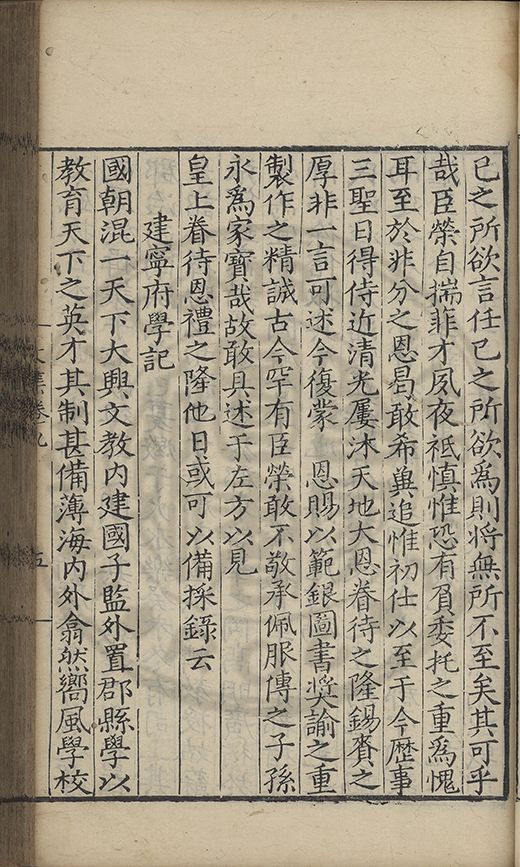 已之所欲言任已之所欲為則將無所不至矣其可乎
哉臣榮自揣菲才夙夜祗慎惟恐有負委托之重為愧
耳至於非分之恩曷敢希兾追惟初仕以至于今歷事
三聖日得侍近清光屢沐天地大恩眷待之隆錫賚之
厚非一言可述今復蒙　恩賜以範銀圖書奬諭之重
製作之精誠古今罕有臣榮敢不敬承佩服傳之子孫
永為家寶哉故敢具述于左方以見
皇上眷待恩禮之隆他日或可以備採錄云
建寧府學記
國朝混一天下大興文教內建國子監外置郡縣學以
教育天下之英才其制甚備薄海內外翕然嚮風學校
文集卷九
五